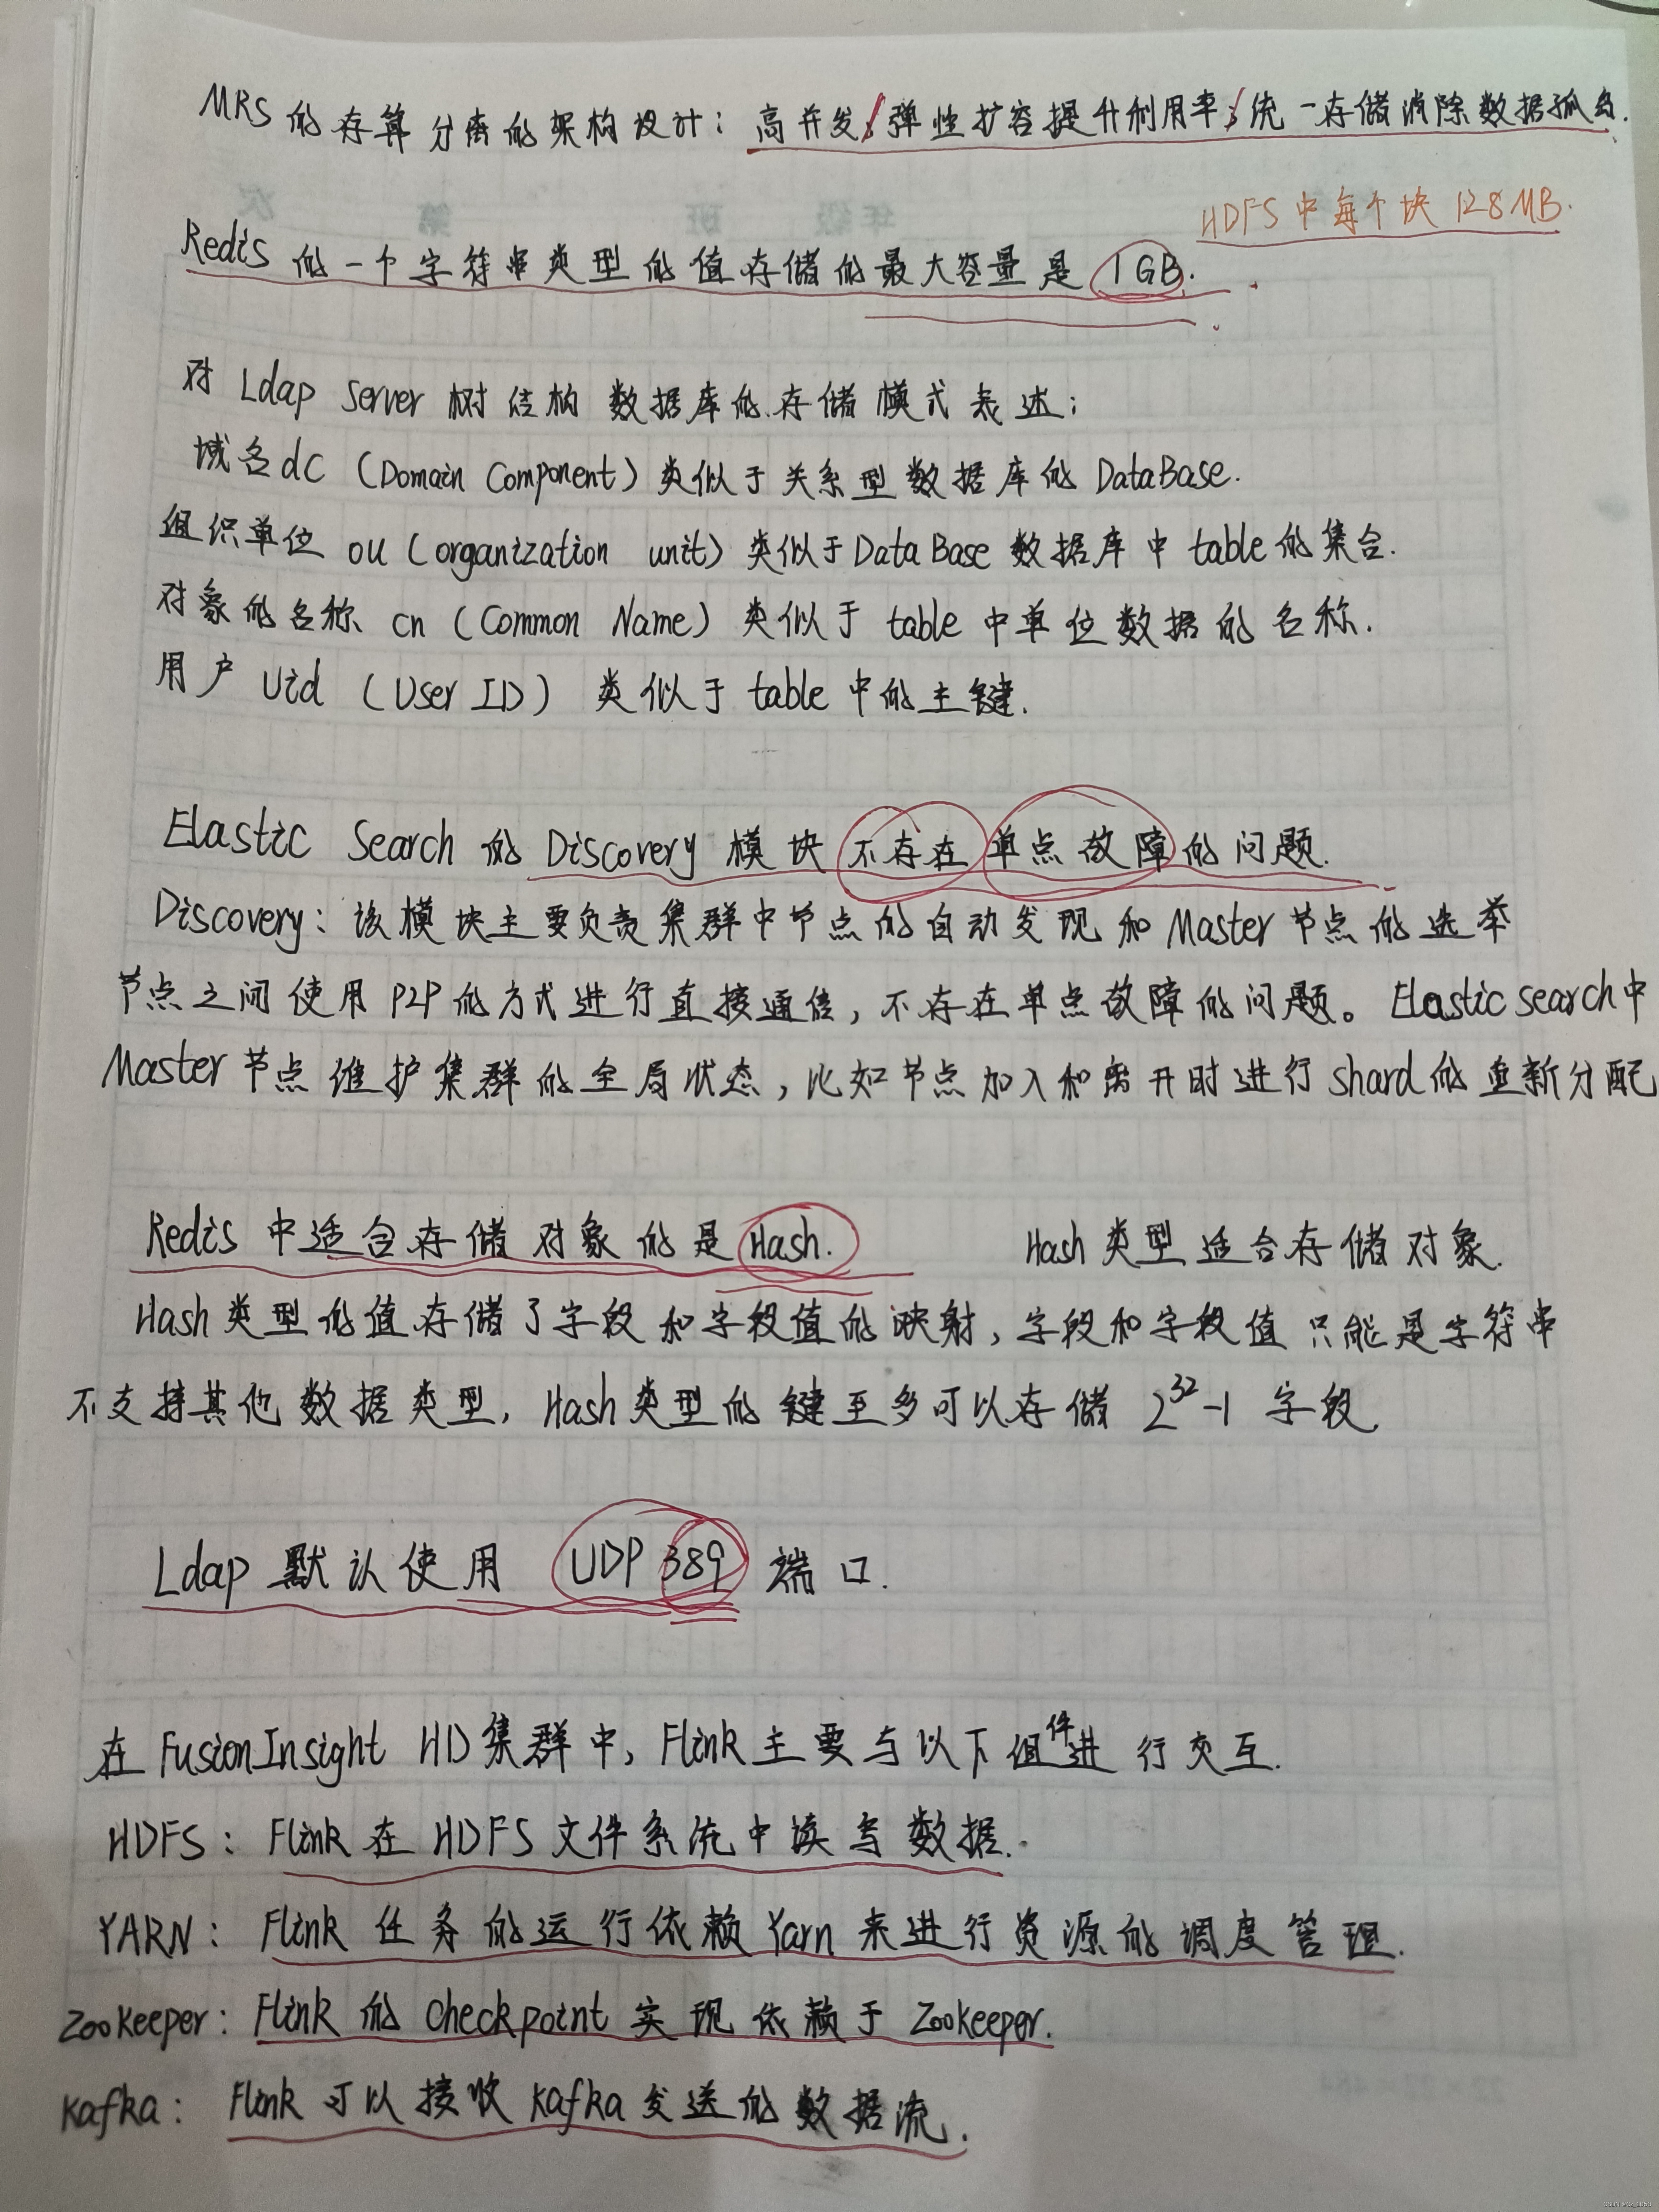 MRS的存算分离的架构设计: 高并发;弹性扩容提升利用率;统一存储消除数据孤岛.
HDFS中每个块128MB.
Redis的一个字符串类型的值存储的最大容量是1GB.
对Ldap Server树结构数据库的存储模式表述:
域名dc (Domain Component) 类似于关系型数据库的DataBase.
组织单位 ou (organization unit) 类似于DataBase数据库中table的集合.
对象的名称 cn (Common Name) 类似于table中单位数据的名称.
用户 Uid (User ID) 类似于table中的主键.
Elastic Search的Discovery模块不存在单点故障的问题.
Discovery: 该模块主要负责集群中节点的自动发现和Master节点的选举
节点之间使用P2P的方式进行直接通信, 不存在单点故障的问题。Elastic search中
Master节点维护集群的全局状态, 比如节点加入和离开时进行shard的重新分配
Redis中适合存储对象的是Hash. Hash类型适合存储对象.
Hash类型的值存储了字段和字段值的映射, 字段和字段值只能是字符串
不支持其他数据类型, Hash类型的键至多可以存储 2^32-1 字段.
Ldap默认使用 UDP 389 端口.
在FusionInsight HD集群中, Flink主要与以下组件进行交互.
HDFS: Flink在HDFS文件系统中读写数据.
YARN: Flink任务的运行依赖Yarn来进行资源的调度管理.
ZooKeeper: Flink的checkpoint实现依赖于Zookeeper.
Kafka: Flink可以接收Kafka发送的数据流.